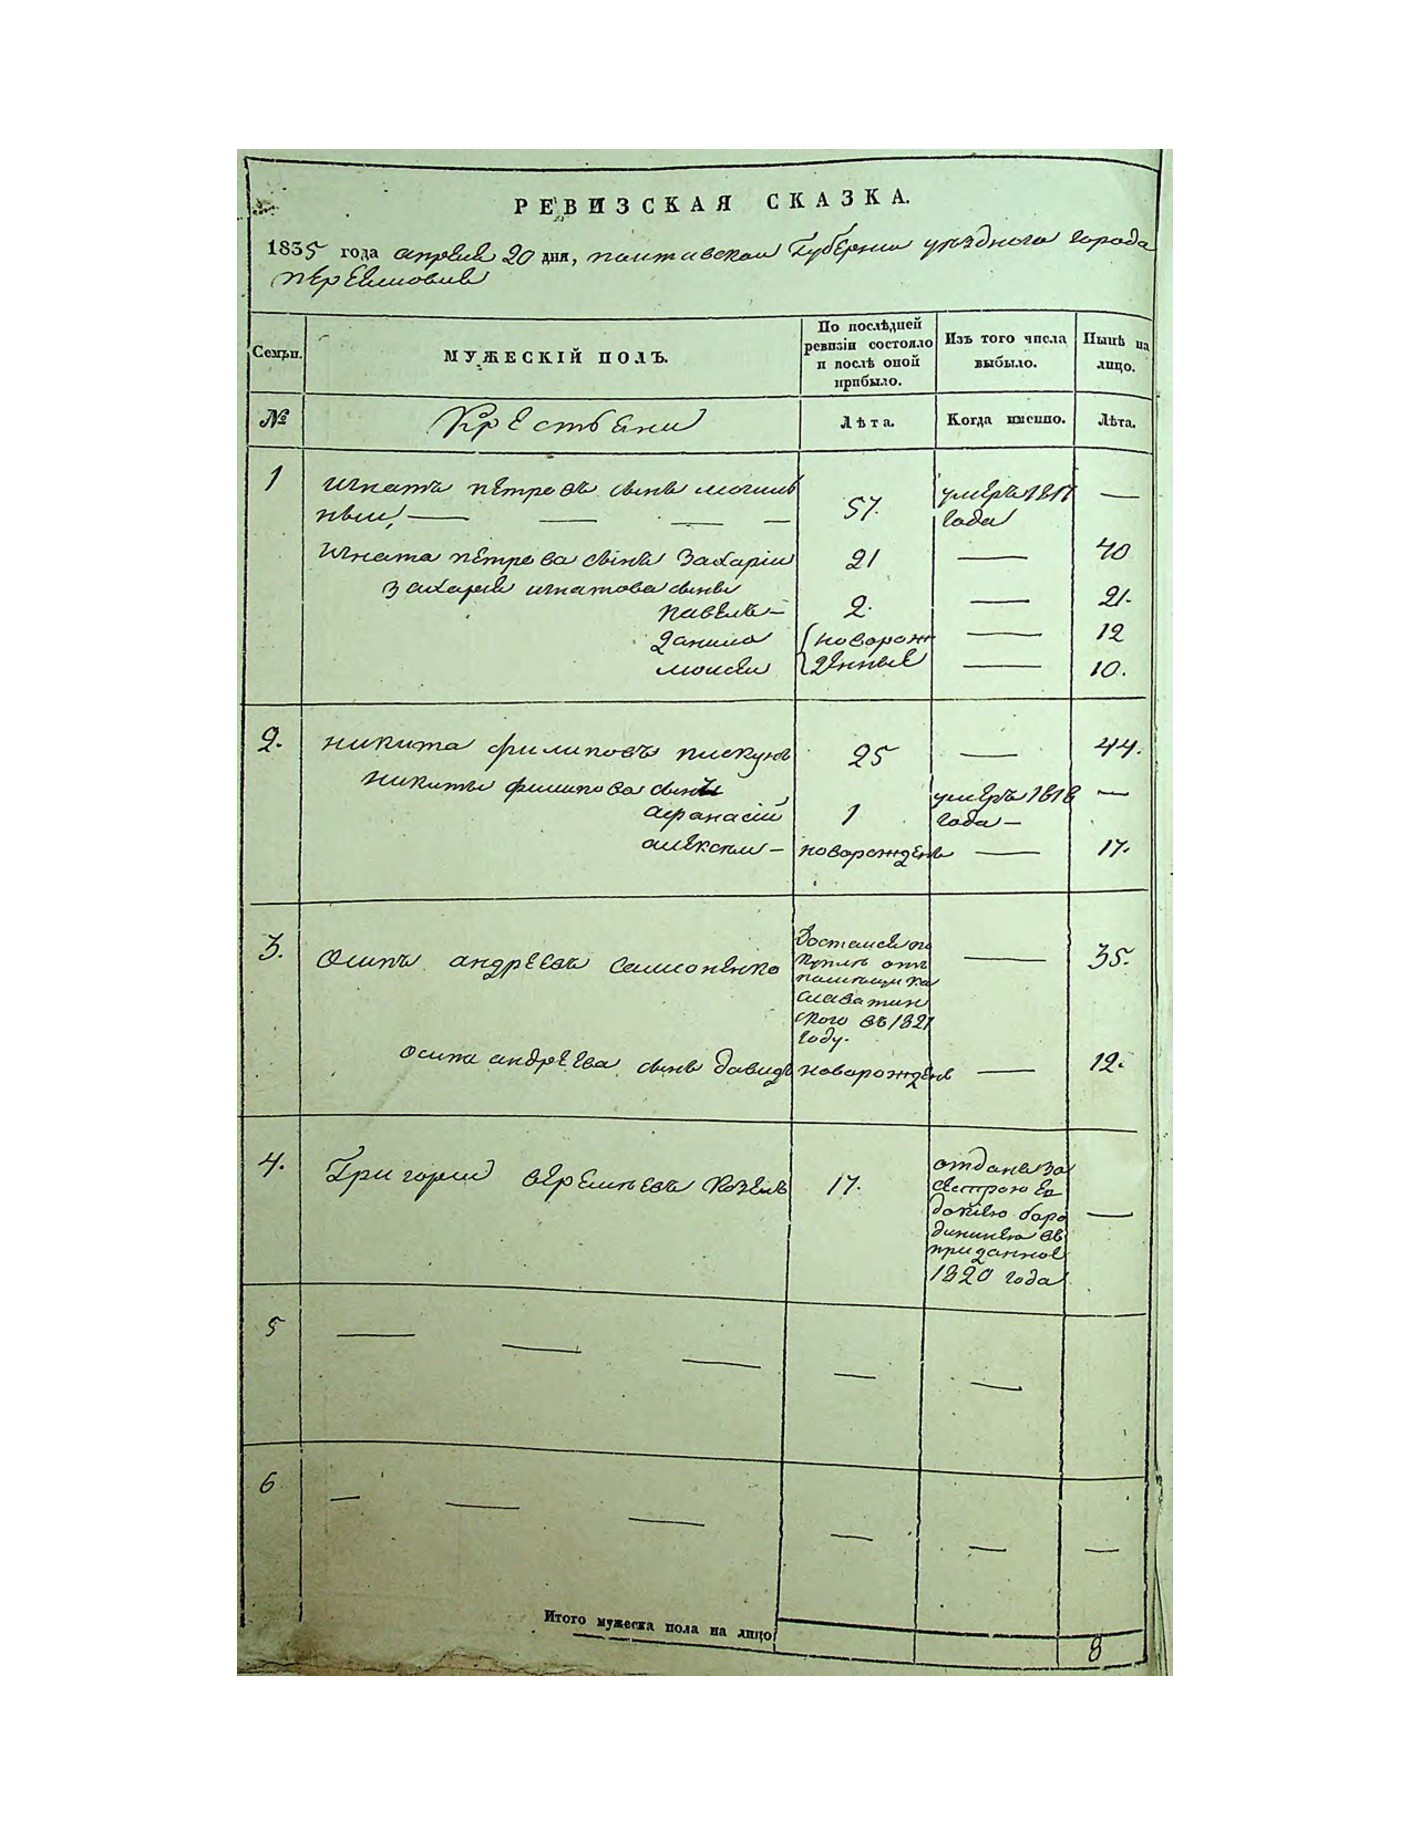 РЕВИЗСКАЯ СКАЗКА.
1835 года апреля 20 дня, полтавской Губернии уездного города
переяслова
Семьи.
МУЖЕСКІЙ ПОЛЪ.
По послѣдней ревизіи состояло и послѣ оной прибыло.
Изъ того числа выбыло.
Нынѣ на лицо.
№
Крестьяни
Лѣта.
Когда именно.
Лѣта.
1
игнатъ петровъ сынъ могиль
ный,
57.
умеръ 1817
года
—
игната петрова сынъ захарій
21
—
40
захарія игнатова сынъ
павелъ —
2.
—
21.
данило
новорож
—
12
моисей
денные
—
10.
2.
никита филиповъ пискунъ
25
—
44.
никиты филипова сынъ
афанасій
1
умеръ 1818
года —
—
алексѣй —
новорожденъ
—
17.
3.
Осипъ андреевъ самсоненко
Достался по
куплѣ отъ
помещика
славатин
ского въ 1821
году.
—
35.
осипа андреева сынъ давидъ
новорожденъ
—
12.
4.
Григорий веремѣевъ козелъ
17.
отданъ за
сестрою ев
докіею боро
диникою въ
приданное
1820 года
—
5
— — —
—
—
6
— — —
—
—
—
Итого мужеска пола на лицо
8